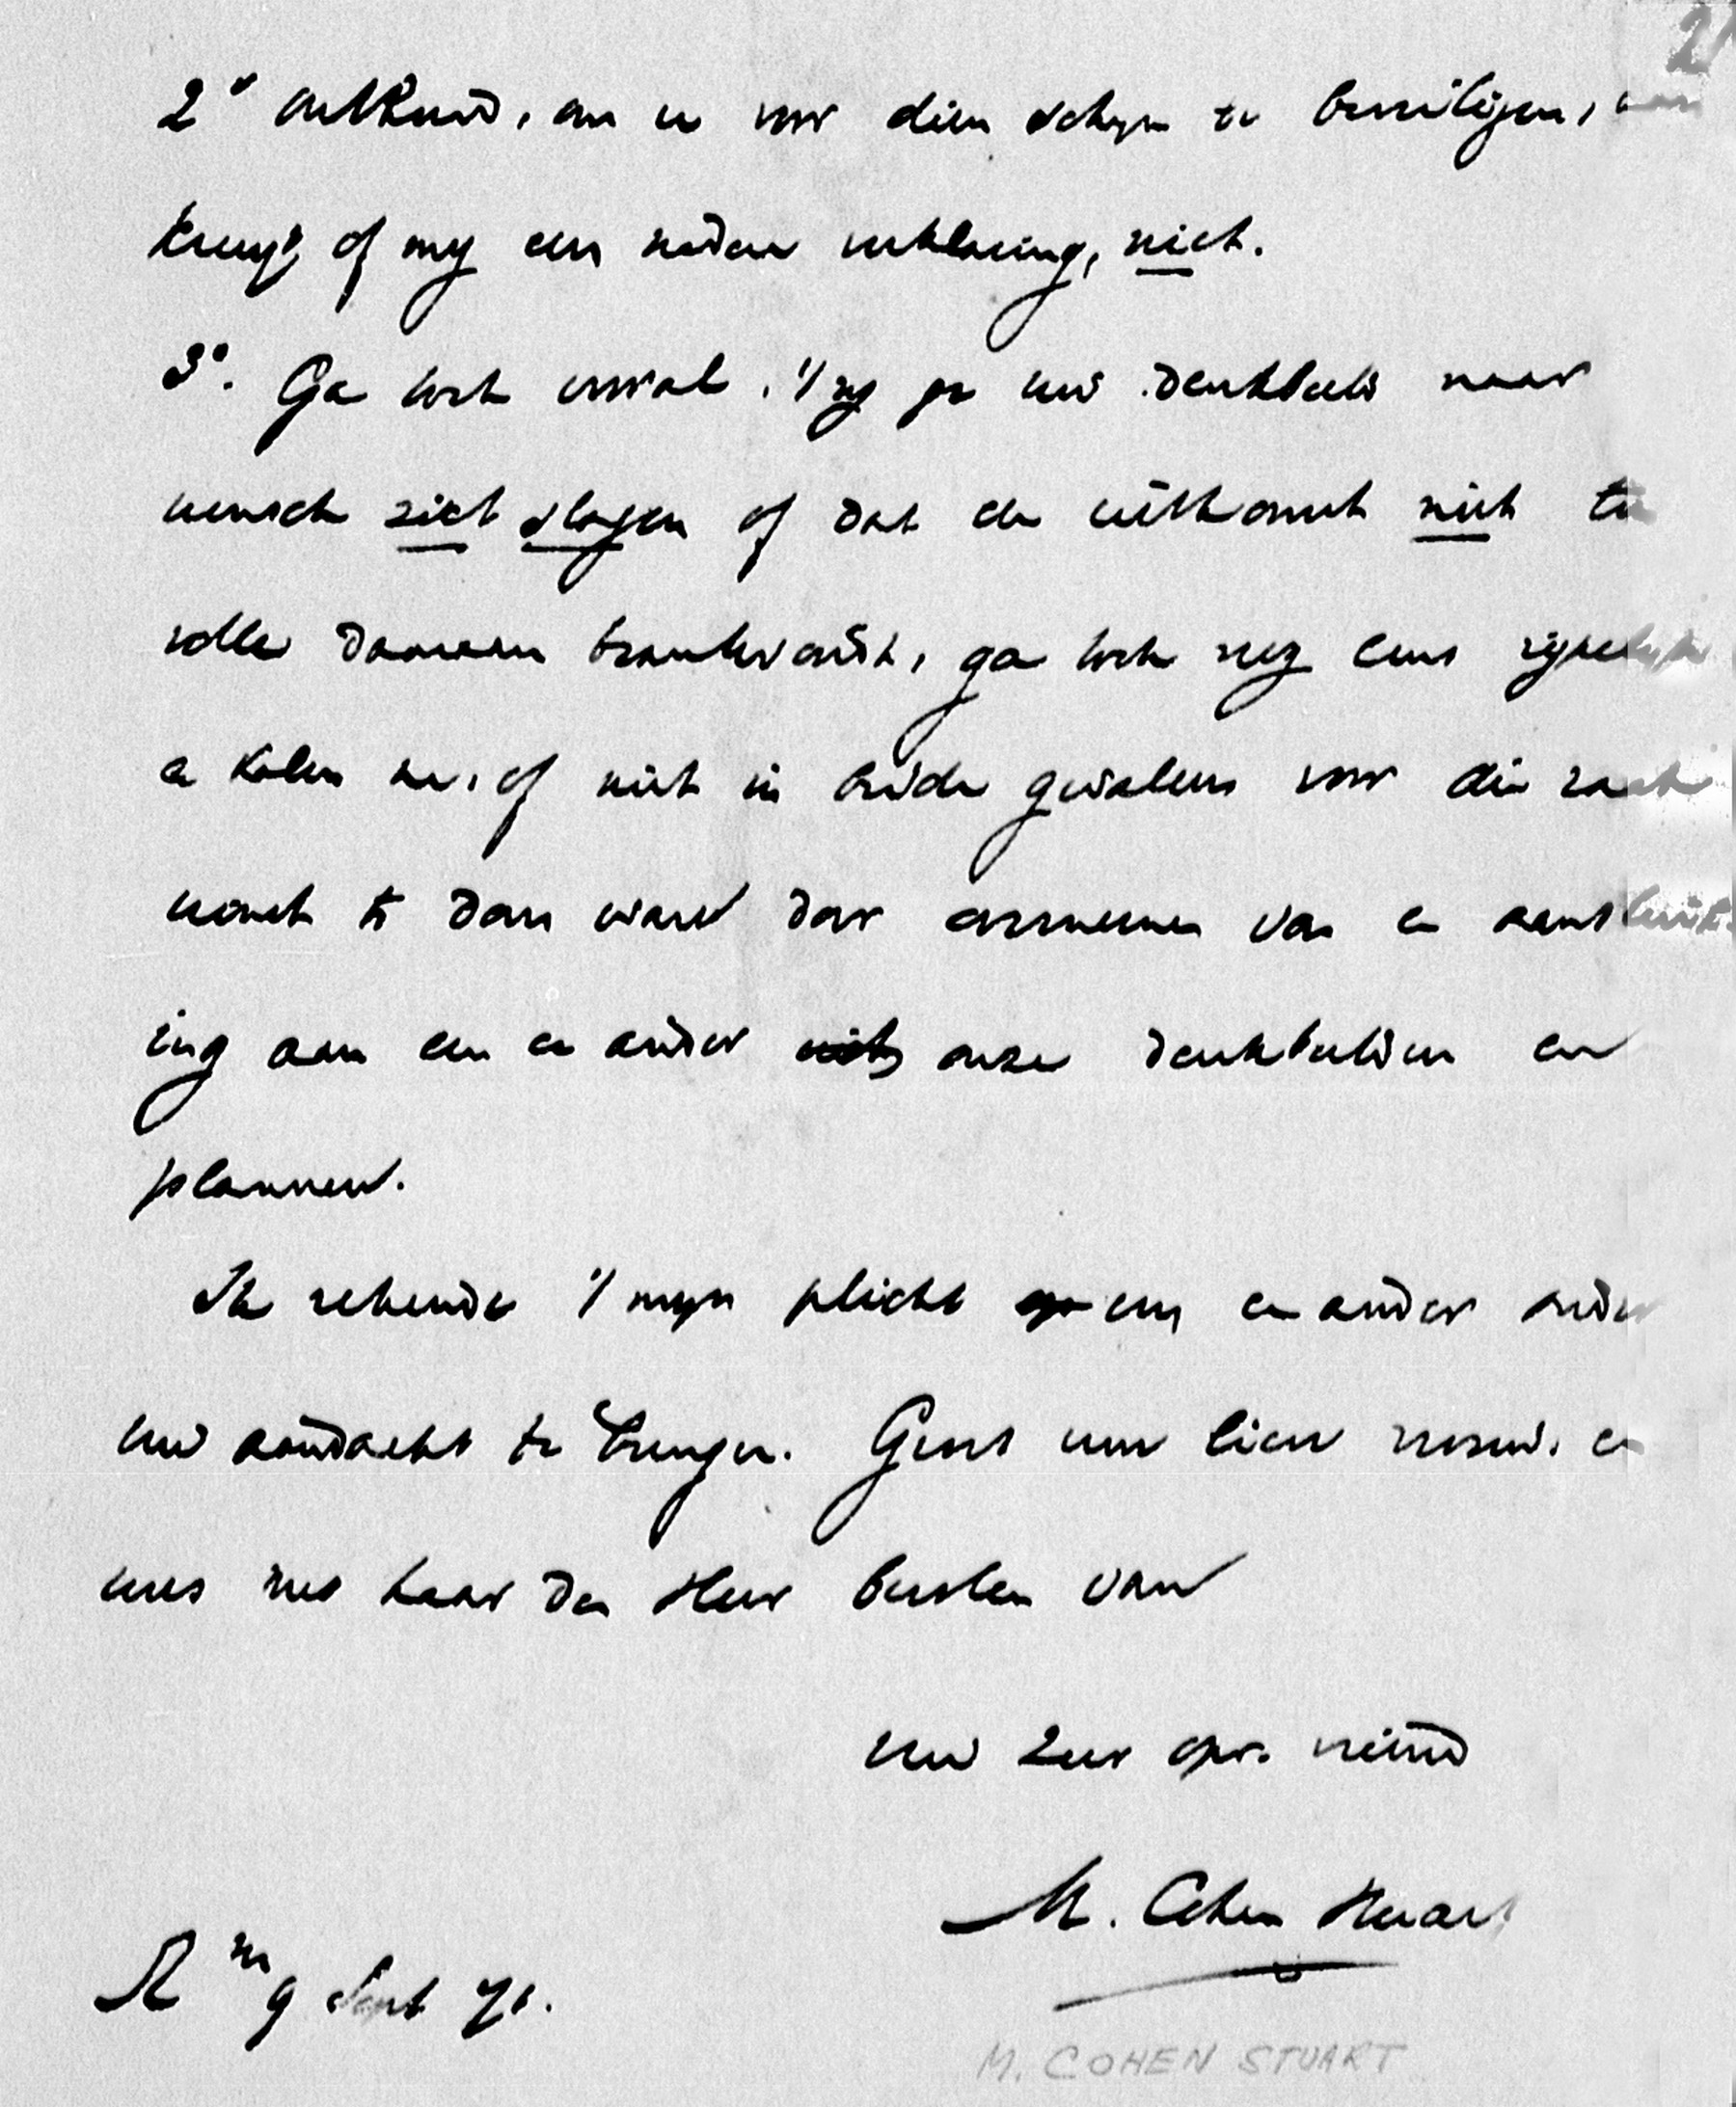 2° ontkend, om u voor dien schijn te beveiligen, 
of my een nadere verklaring, niet.
3°. Ga toch vooral, 't zy ge uw denkbeeld naar
wensch ziet slagen of dat de uitkomst niet ten
volle daaraan beantwoordt, ga toch nog eens rijpelijk
en kalm na, of niet in beide gevallen voor die zaak
meer te doen ware door aannemen van en aansluit-
ing aan een en ander onze denkbeelden en
plannen.
Ik rekende 't myn plicht een en ander onder
uw aandacht te brengen. Groet uwe lieve vrouw. en
wees met haar den Heer bevolen van
uw zeer opr. vriend
M. Cohen Stuart
R^m 9 Sept 71.
M. COHEN STUART